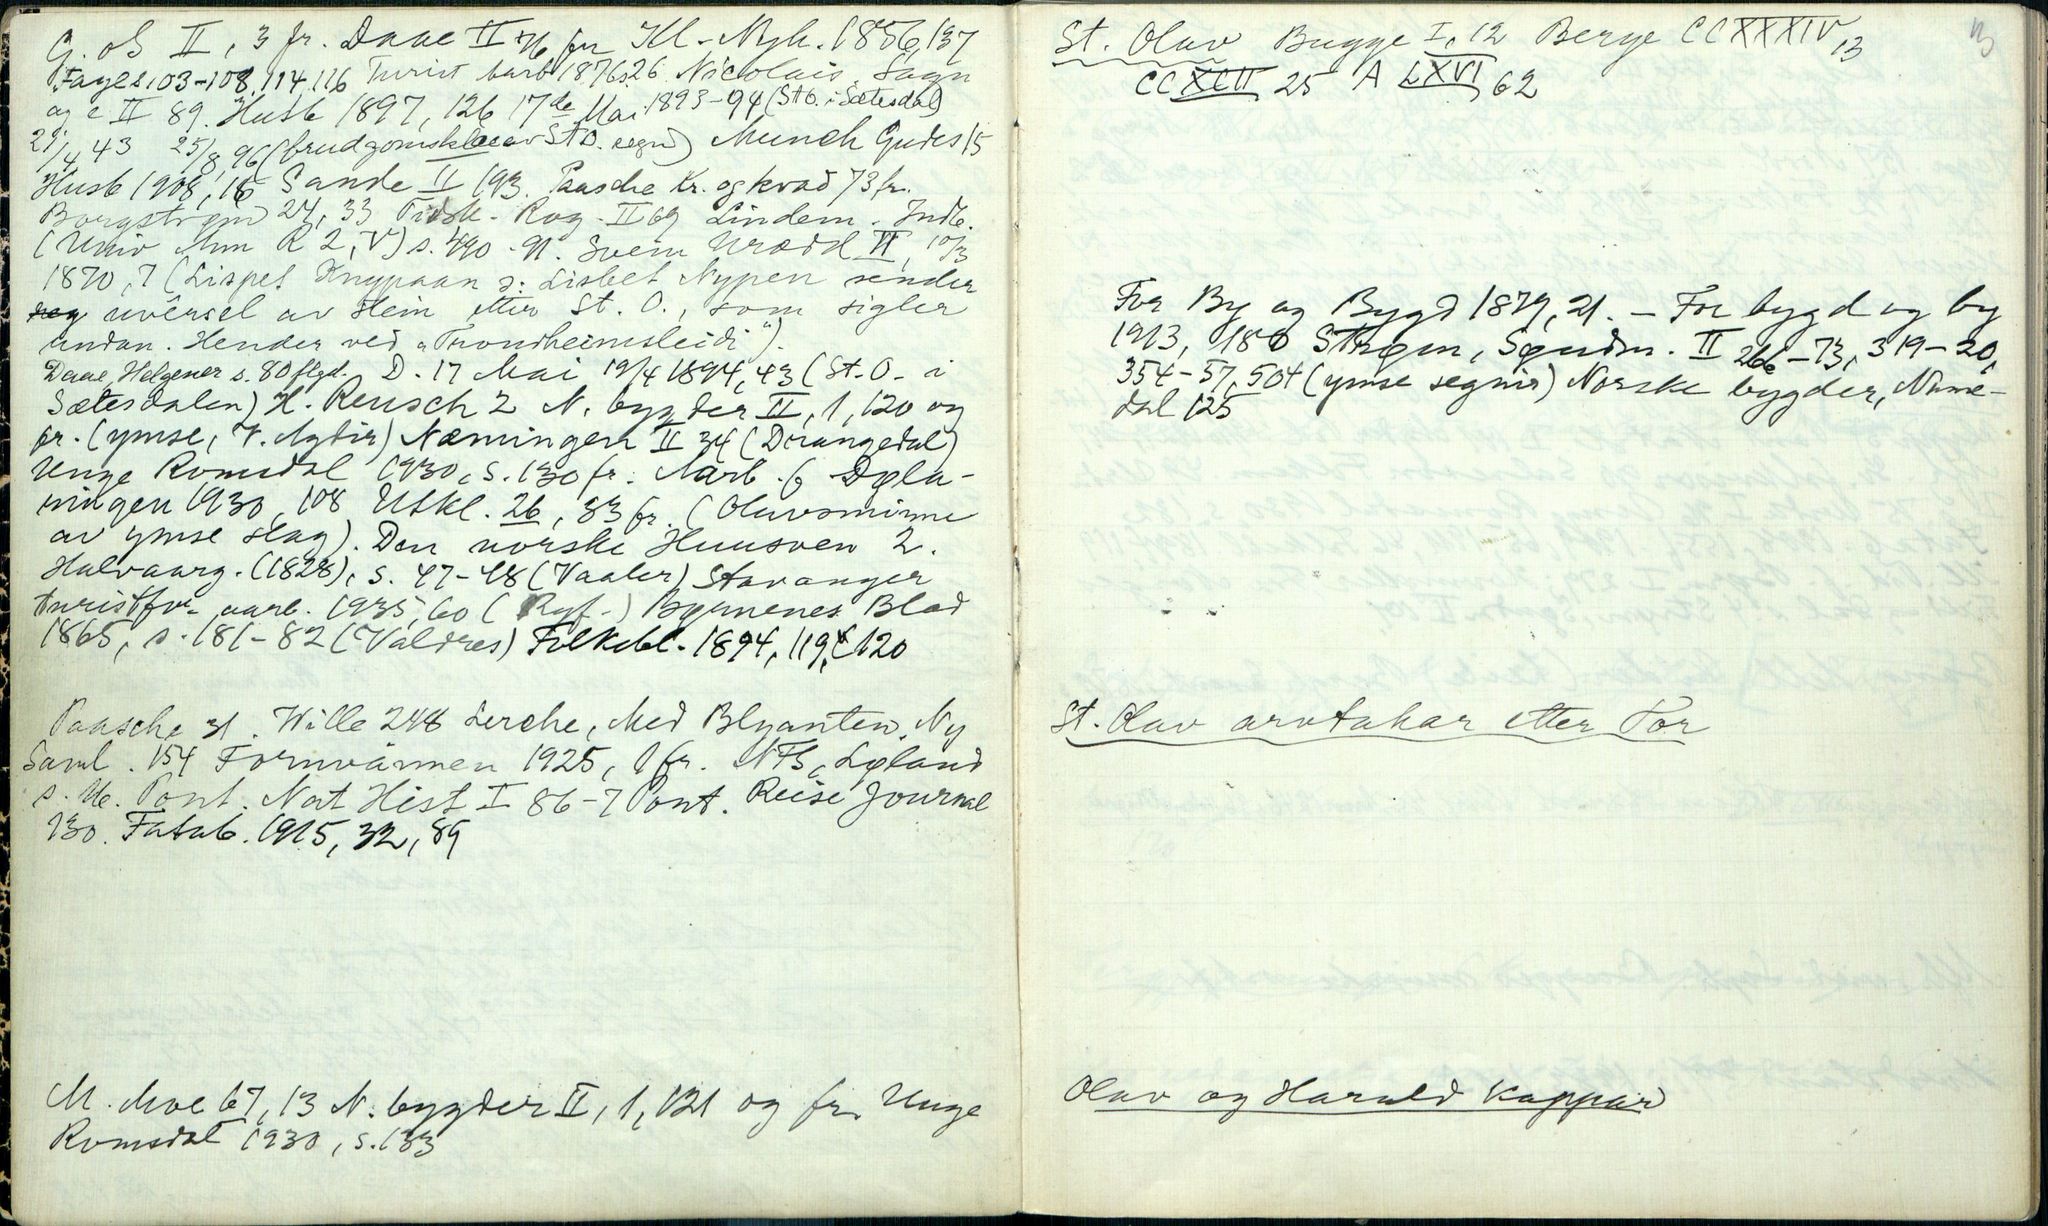 G. oS II, 3 fr. Daae II 76 fr Kl-Nyh. 1856, 137
Faye 103-108, 114, 116 Turist aarb 1876 s 26 Nicolais. Sagn
og e II 89. Husb 1897, 126 17de Mai 1893-94 (St O. i Sætesdal)
21/4 43 25/8, 96 (brudgomsklæe av St O. segn) Munch Gudes 15
Husb 1908, 16 Sande II 193. Paasche Kr. og kvad 73 fr.
Borgstrøm 24, 33 Tidsk. Rog. II 69 Lindem. Indb.
(Univ Ann R 2, V) s. 490-91. Svein Urædd VI, 10/3
1870, 7 (Lispet Knypaan ɔ: Lisbet Nypen sender
uversel av Hein etter St. O., som sigler
undan. Hender ved "Trondheimsleidi").
Daae, Helgener s. 80 flgd. D. 17 Mai 19/4 1894, 43 (St. O. i
Sætesdalen) H. Reusch 2 N. bygder II, 1, 120 og
fr. (ymse, V. Agdir) Næmingen II 34 (Drangedal)
Unge Romsdal 1930, s. 130 fr. Aarb. f Døla-
ningen 1930, 108 Utkl. 26, 83 fr. (Olavsminne
av ymse slag). Den norske Huusven 2.
Halvaarg. (1828), s. 47-48 (Vaaler) Stavanger
turistfor- aarb. 1935, 60 (Ryf.) Børnenes Blad
1865, s. 181-82 (Valdres) Folkebl. 1894, 119, 120
Paasche 31. Wille 248 Lerche, Med Blyanten. Ny
Saml. 154 Fornvännen 1925, 1 fr. NFS, Løland
s. Pont. Nat Hist I 86-7 Pont. Reise Journal
130. Fatab. 1915, 32, 89
M. Moe 67, 13 N. bygder II, 1, 121 og fr. Unge
Romsdal 1930, s. 133
St. Olav Bugge I, 12 Berge CCXXXIV 13
CCXCII 25 A LXVI 62
For By og Bygd 1879, 21. – For bygd og by
1913, 180 Strøm, Søndm. II 266-73, 319-20,
354-57, 504 (ymse segnir) Norske bygder, Nume-
dal 125
St. Olav arvtakar etter Tor
Olav og Harald kappar